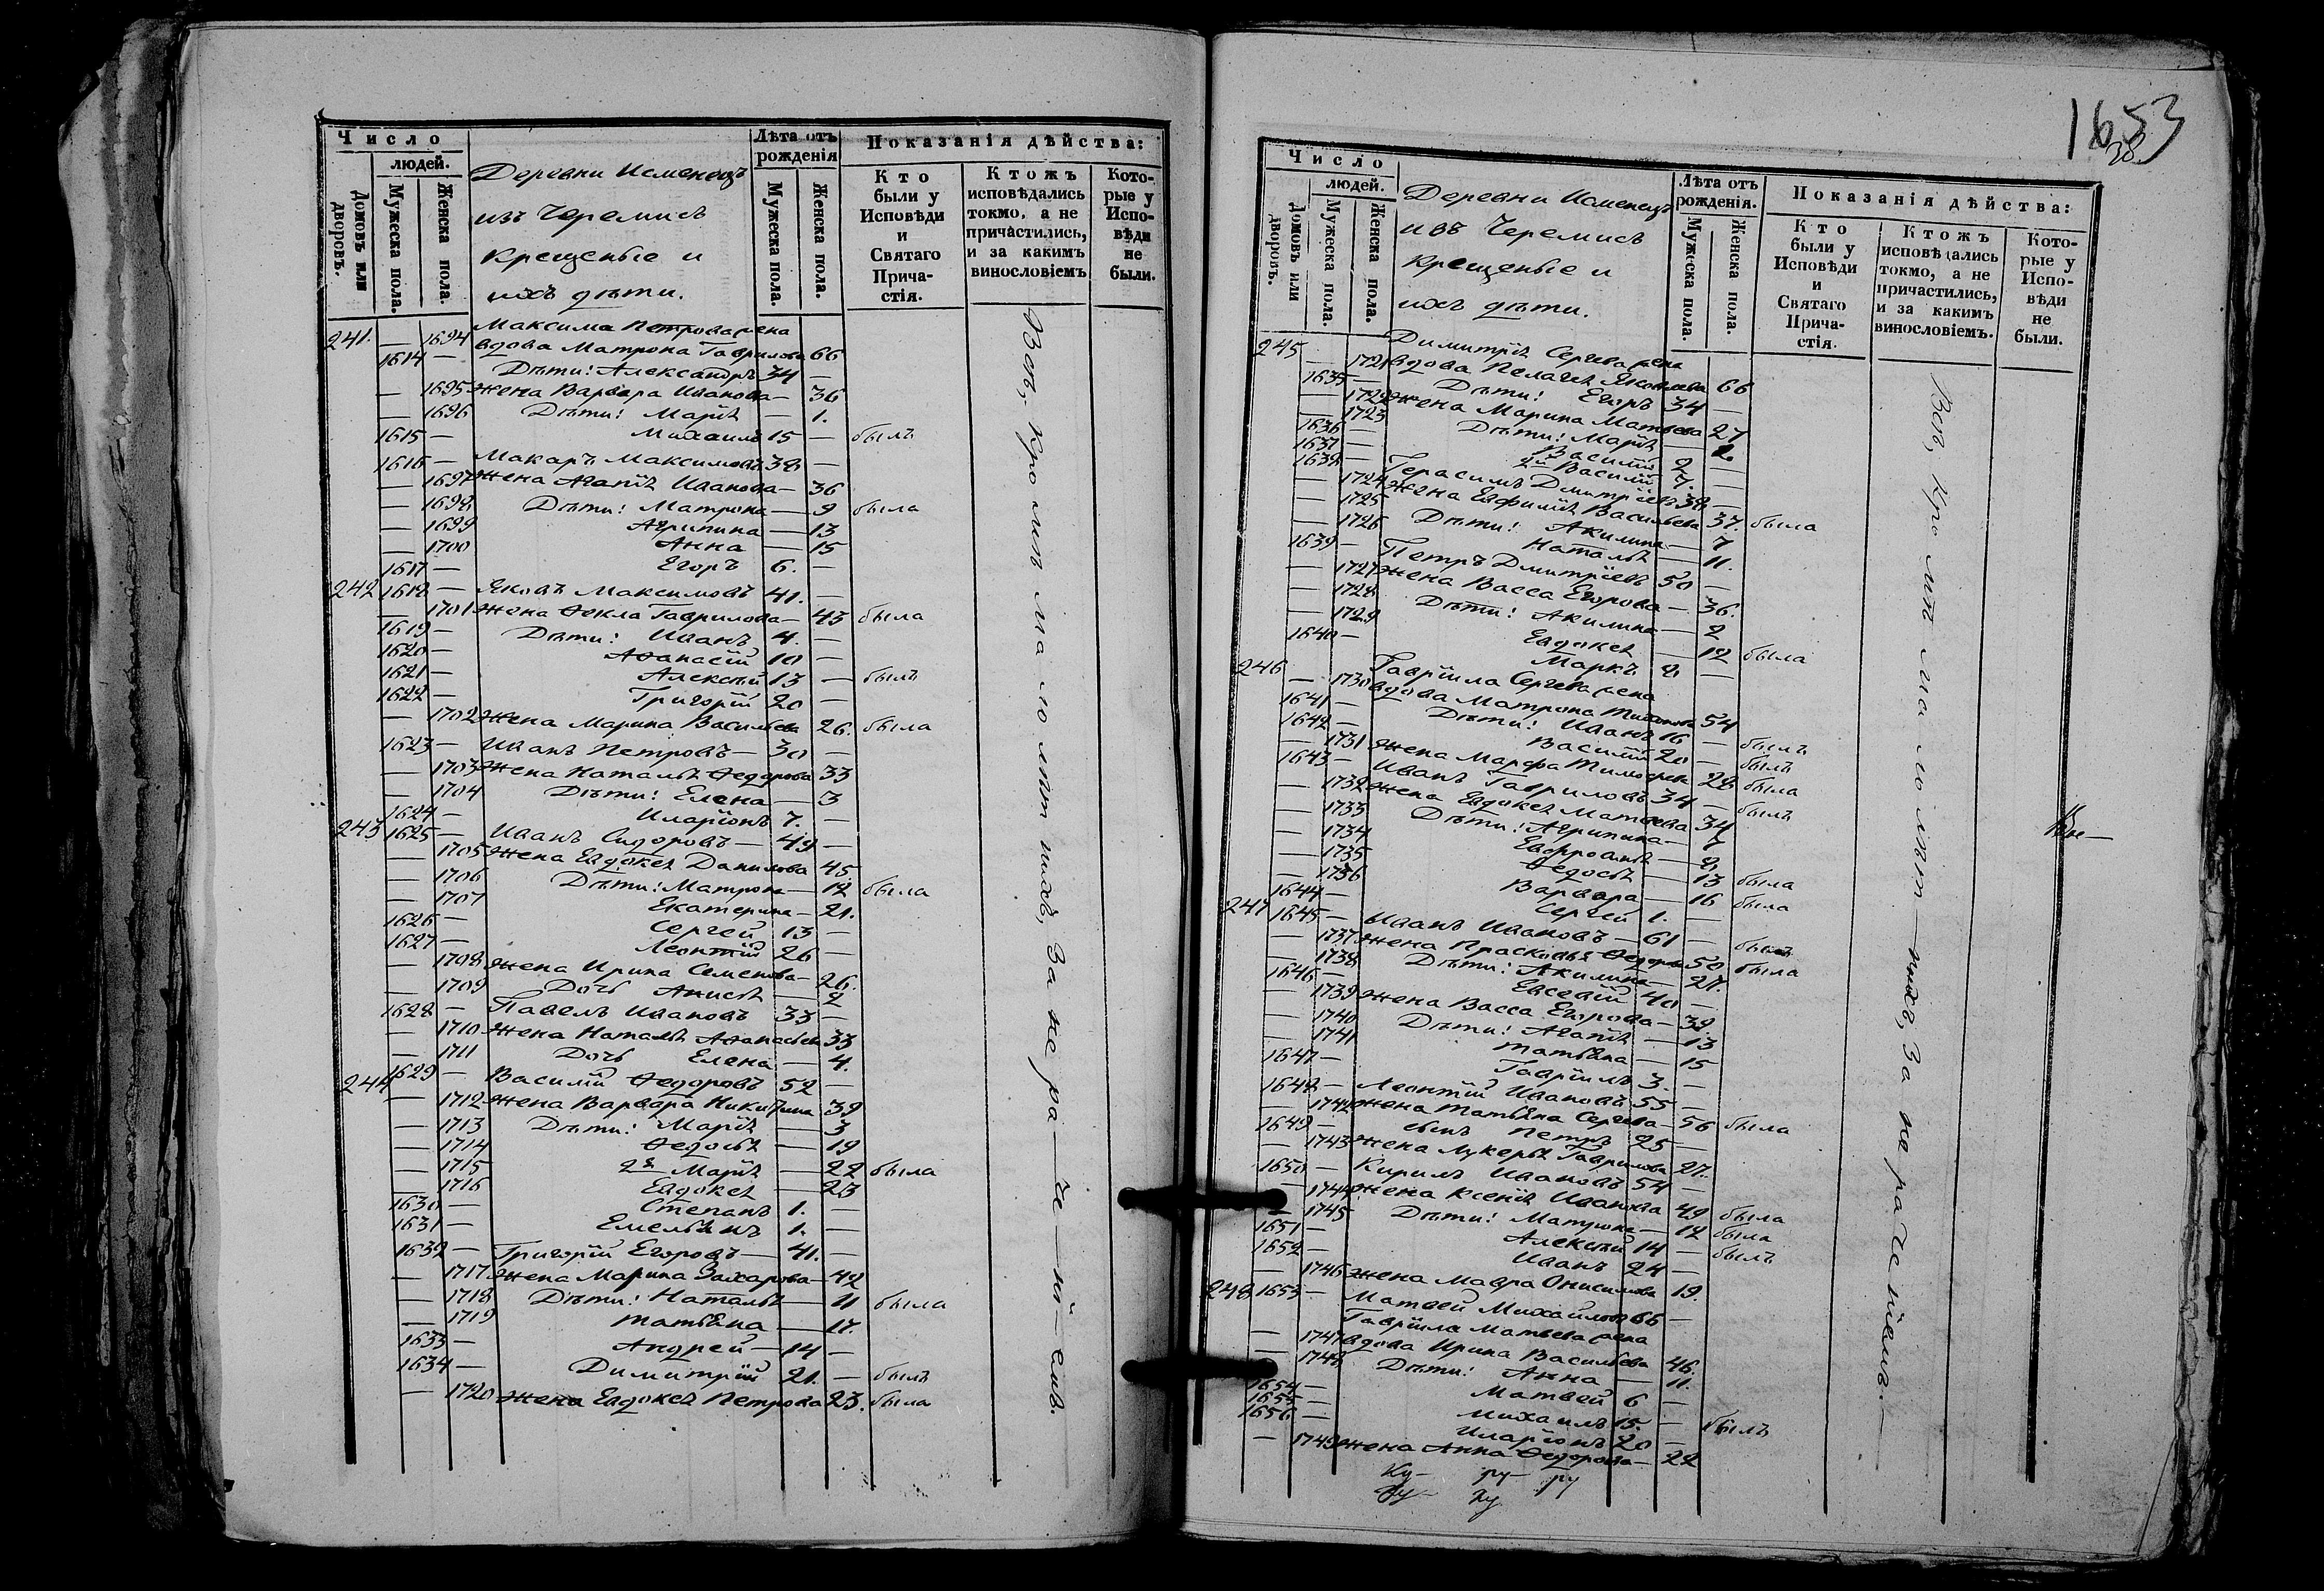 Число
людей.
Домовъ или дворовъ.
Мужеска пола.
Женска пола.
Деревни Исменецъ
изъ Черемисъ
крещеные и
ихъ дѣти.
Лѣта отъ рожденія
Мужеска пола.
Женска пола.
Показанія дѣйства:
Кто были у Исповѣди и Святаго Причастія.
Ктожъ исповѣдались токмо, а не причастились, и за какимъ винословіемъ
Которые у Исповѣди не были.
Максима Петрова жена
241. — 1694 вдова Матрона Гаврилова 66
1614 — Дѣти: Александръ 34 —
— 1695 Жена Варвара Иванова — 36
— 1696 Дѣти: Марія — 1.
1615 — Михаилъ 15 — былъ
1616 — Макаръ Максимовъ 38 —
— 1697 Жена Агапія Иванова — 36
— 1698 Дѣти: Матрона — 9 была
— 1699 Агрипина — 13
— 1700 Анна — 15
1617 — Егоръ 6. —
242 1618 — Яковъ Максимовъ 41. —
— 1701 Жена Ѳекла Гаврилова — 43 была
1619 — Дѣти: Иванъ 4. —
1620 — Аѳанасій 10 —
1621 — Алексѣй 13 — былъ
1622 — Григорій 20 —
— 1702 Жена Марина Васильева 26. была
1623 — Иванъ Петровъ — 30 —
— 1703 Жена Наталья Ѳедорова 33
— 1704 Дѣти: Елена — 3
1624 — Иларіонъ 7. —
243 1625 — Иванъ Сидоровъ — 49 —
— 1705 Жена Евдокея Данилова 45.
— 1706 Дѣти: Матрона — 12 была
— 1707 Екатерина — 21.
1626 — Сергей 13 —
1627 — Леонтій 26 —
— 1708 Жена Ирина Семенова — 26.
— 1709 Дочь Анисья — 2
1628 — Павелъ Ивановъ 33 —
— 1710 Жена Наталья Аѳанасьева 33
— 1711 Дочь Елена — 4.
244 1629 — Василій Ѳедоровъ 52 —
— 1712 Жена Варвара Никитина 39
— 1713 Дѣти: Марія — 3
— 1714 Ѳедосья — 19
— 1715 2я Марія — 22 была
— 1716 Евдокея — 23
1630 — Степанъ 1. —
1631 — Емельянъ 1. —
1632 — Григорій Егоровъ — 41. —
— 1717 Жена Марина Захарова — 42
— 1718 Дѣти: Наталья — 11 была
— 1719 Татьяна — 17.
1633 — Андрей — 14 —
1634 — Димитрій 21. — былъ
— 1720 Жена Евдокея Петрова 23. была
Всѣ, кромѣ малолѣтнихъ, за нераченіемъ.
1653
38
Число
людей.
Домовъ или дворовъ.
Мужеска пола.
Женска пола.
Деревни Исменецъ
изъ Черемисъ
крещеные и
ихъ дѣти.
Лѣта отъ рожденія.
Мужеска пола.
Женска пола.
Показанія дѣйства:
Кто были у Исповѣди и Святаго Причастія.
Ктожъ исповѣдались токмо, а не причастились, и за какимъ винословіемъ.
Которые у Исповѣди не были.
Димитрія Сергева жена
245 — 1721 вдова Пелагея Яковлева 66
1635 — Дѣти: Егоръ 34 —
— 1722 Жена Марина Матвева 27
— 1723 Дѣти: Марія — 1.
1636 — Василій 2 —
1637 — 2й Василій 7. —
1638 — Герасимъ Дмитріевъ 38 —
— 1724 Жена Евфимія Васильева 37. была
— 1725 Дѣти: Акилина — 7
— 1726 Наталья — 11.
1639 — Петръ Дмитріевъ 50 —
— 1727 Жена Васса Егорова — 36.
— 1728 Дѣти: Акилина — 2
— 1729 Евдокея — 12 была
1640 — Маркъ 8. —
246 Гавріила Сергева жена
— 1730 вдова Матрона 54
1641 — Дѣти: Иванъ 16 — былъ
1642 — Василій 20 — былъ
— 1731 Жена Марфа Тимофева 28 была
1643 — Иванъ Гавриловъ 34 — былъ
— 1732 Жена Евдокея Матвева 34
— 1733 Дѣти: Агрипина — 7
— 1734 — 9.
— 1735 Ѳедосья — 13 была
— 1736 Варвара — 16 была
1644 — Сергей 1. —
247 1645 — Иванъ Ивановъ — 61 — былъ
— 1737 Жена Прасковья Ѳедорова 50 была
— 1738 Дѣти: Акилина — 27.
1646 — Евсевій 40 —
— 1739 Жена Васса Егорова — 39.
— 1740 Дѣти: Агапія — 13
— 1741 Татьяна — 15
1647 — Гавріилъ 3. —
1648 — Леонтій Ивановъ 55 —
— 1742 Жена Татьяна Сергева — 56 была
1649 — сынъ Петръ 25 —
— 1743 Жена Лукерья Гаврилова 27.
1650 — Кирилъ Ивановъ 54 —
— 1744 Жена Ксенія Иванова 49 была
— 1745 Дѣти: Матрона — 12 была
1651 — Алексѣй 14 — былъ
1652 — Иванъ 24 —
— 1746 Жена Мавра Онисимова 19.
248 1653 — Матвей Михайловъ 66 —
Гавріила Матвева жена
— 1747 вдова Ирина Васильева 46.
— 1748 Дѣти: Анна — 11.
1654 — Матвей 6 —
1655 — Михаилъ 15. — былъ
1656 — Иларіонъ 20 —
— 1749 Жена Анна Ѳедорова — 22
Всѣ, кромѣ малолѣтнихъ, за нераченіемъ. —